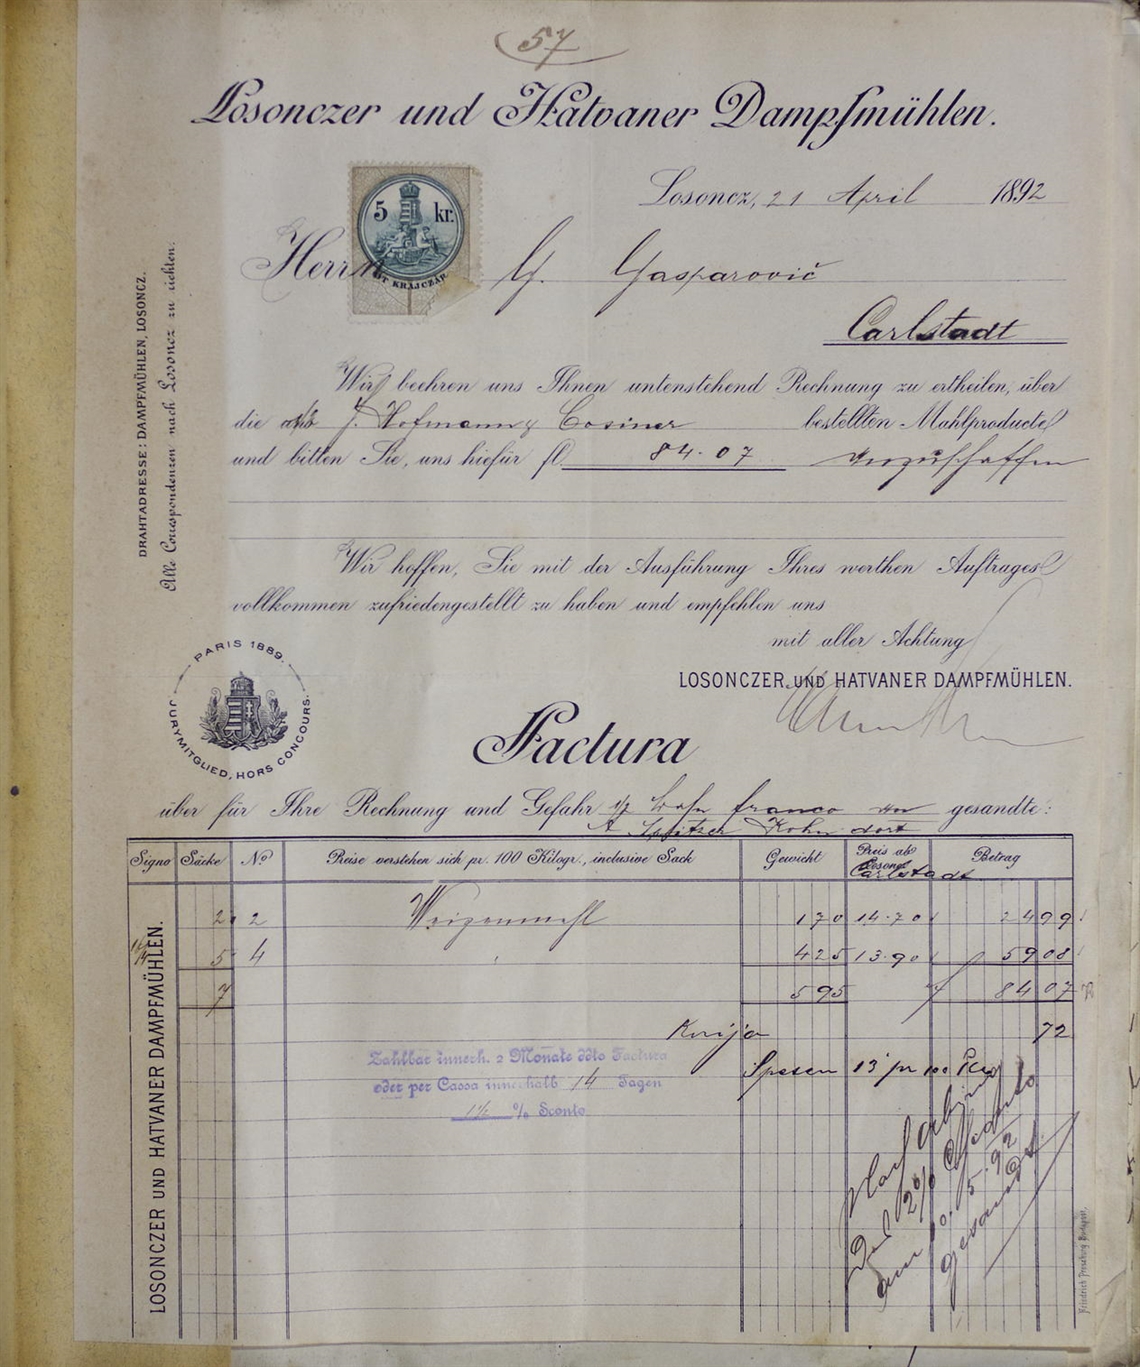 57
Losonczer und Hatvaner Dampfmühlen.
Losoncz, 21 April 1892
5 kr.
KRAJCZÁR
Herrn G. Gasparovič
Carlstadt
DRAHTADRESSE: DAMPFMÜHLEN, LOSONCZ.
Alle Correspondenzen nach Losoncz zu richten.
Wir beehren uns Ihnen untenstehend Rechnung zu ertheilen, über
die J. Hofmann & Cosiner bestellten Mahlproducte
und bitten Sie, uns hiefür fl. 84.07 anzuschaffen
Wir hoffen, Sie mit der Ausführung Ihres werthen Auftrages
vollkommen zufriedengestellt zu haben und empfehlen uns
mit aller Achtung
LOSONCZER UND HATVANER DAMPFMÜHLEN.
PARIS 1889.
JURYMITGLIED, HORS CONCOURS.
Factura
über für Ihre Rechnung und Gefahr p Bahn franco von gesandte:
A Spitzer Kohn dort
Signo Säcke No Preise verstehen sich pr. 100 Kilogr., inclusive Sack Gewicht Preis ab Losoncz Carlstadt Betrag
2 2 Weizenmehl 170 14.70 24 99
5 4 425 13.90 59 08
7 595 84 07
72
Spesen 13 pr 100 Ko
Zahlbar innerh. 2 Monate ddto Factura
oder per Cassa innerhalb 14 Tagen
1½ % Sconto
LOSONCZER UND HATVANER DAMPFMÜHLEN.
2%
5.92
gesandt
Friedrich Pressburg Budapest.